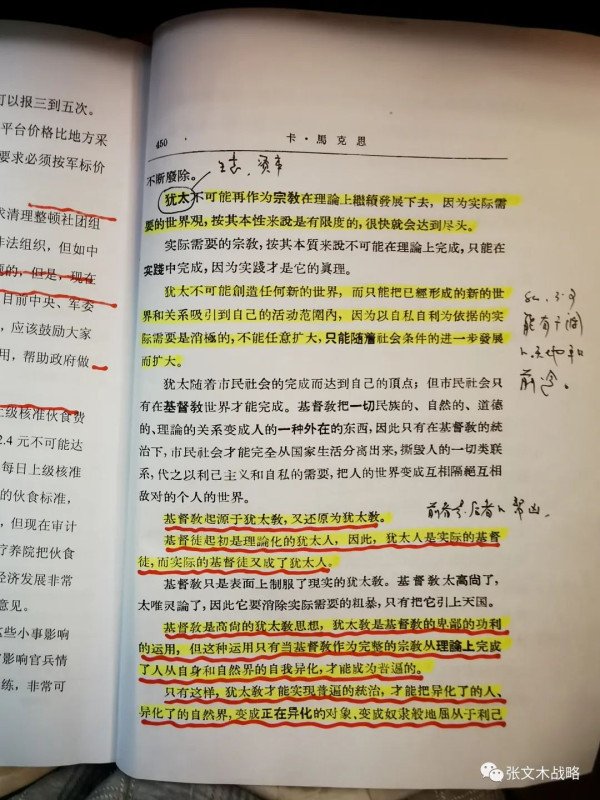 可以报三到五次。
平台价格比地方采
要求必须按军标价
求清理整顿社团组
非法组织，但如中
题的，但是，现在
目前中央、军委
，应该鼓励大家
用，帮助政府做
上级核准伙食费
2.4 元不可能达
每日上级核准
的伙食标准，
，但现在审计
疗养院把伙食
经济发展非常
意见。
这些小事影响
影响官兵情
练，非常可
450
卡·馬克思
不断廢除。
犹太不可能再作为宗敎在理論上繼續發展下去，因为实际需
要的世界观，按其本性来說是有限度的，很快就会达到尽头。
实际需要的宗敎，按其本質来說不可能在理論上完成，只能在
实踐中完成，因为实踐才是它的眞理。
犹太不可能創造任何新的世界，而只能把已經形成的新的世
界和关系吸引到自己的活动范圍内，因为以自私自利为依据的实
际需要是消極的，不能任意扩大，只能随着社会条件的进一步發展
而扩大。
犹太随着市民社会的完成而达到自己的頂点；但市民社会只
有在基督敎世界才能完成。基督敎把一切民族的、自然的、道德
的、理論的关系变成人的一种外在的东西，因此只有在基督敎的統
治下，市民社会才能完全从国家生活分离出来，撕毁人的一切类联
系，代之以利己主义和自私的需要，把人的世界变成互相隔絕互相
敌对的个人的世界。
基督敎起源于犹太敎，又还原为犹太敎。
基督徒起初是理論化的犹太人，因此，犹太人是实际的基督
徒，而实际的基督徒又成了犹太人。
基督敎只是表面上制服了现实的犹太敎。基督敎太高尚了，
太唯灵論了，因此它要消除实际需要的粗暴，只有把它引上天国。
基督敎是高尚的犹太敎思想，犹太敎是基督敎的卑鄙的功利
的运用，但这种运用只有当基督敎作为完整的宗敎从理論上完成
了人从自身和自然界的自我异化，才能成为普遍的。
只有这样，犹太敎才能实现普遍的統治，才能把异化了的人、
异化了的自然界，变成正在异化的对象、变成奴隶般地屈从于利己
张文木战略